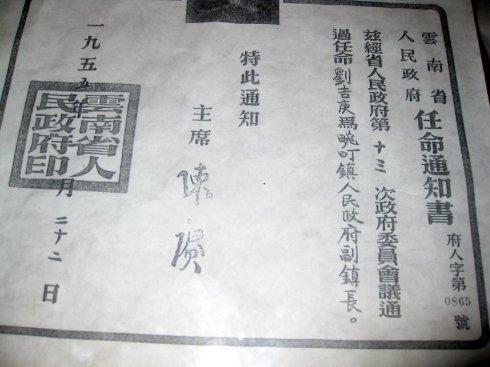 雲南省
人民政府
任命通知書
府人字第
0865
號
茲經省人民政府第十三次政府委員會議通
過任命劉吉庚爲畹町鎮人民政府副鎮長。
特此通知
主席 陳賡
一九五五年 月二十二日
雲南省人
民政府印